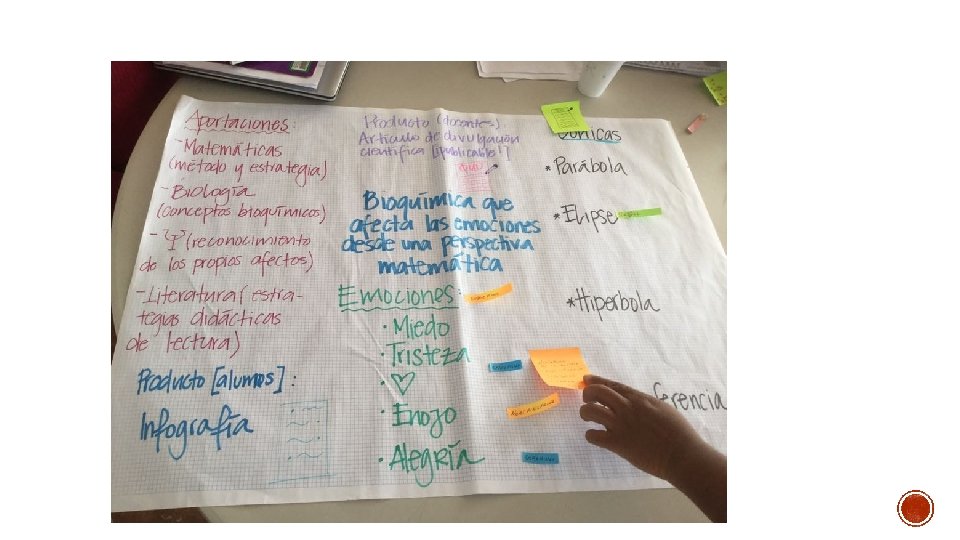 Aportaciones:
- Matemáticas
(método y estrategia)
- Biología
(conceptos bioquímicos)
- Ψ (reconocimiento
de los propios afectos)
- Literatura (estra-
tegias didácticas
de lectura)
Producto [alumnos]:
Infografía
Producto (docentes):
Artículo de divulgación
científica [¡publicable!]
Bioquímica que
afecta las emociones
desde una perspectiva
matemática
Emociones:
· Miedo
· Tristeza
· ♡
· Enojo
· Alegría
Cónicas
* Parábola
* Elipse
* Hiperbola
ferencia